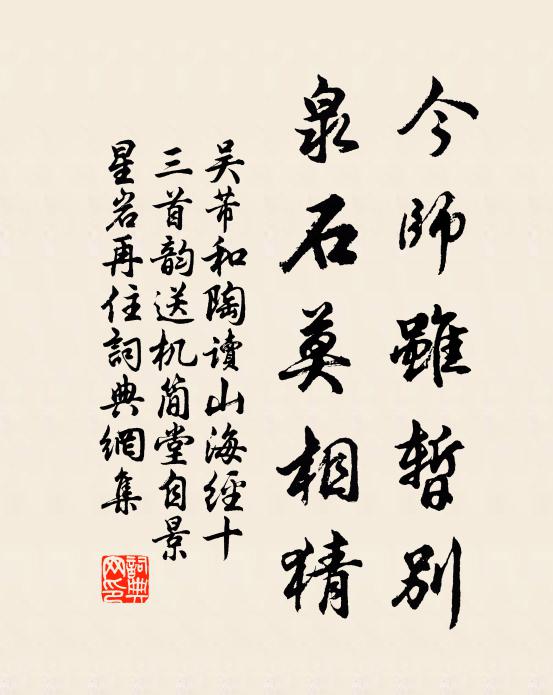 今師雖暫別
泉石莫相猜
吴芾和陶讀山海經十
三首韵送机简堂自景
星岩再住詞典網集
詞典网印